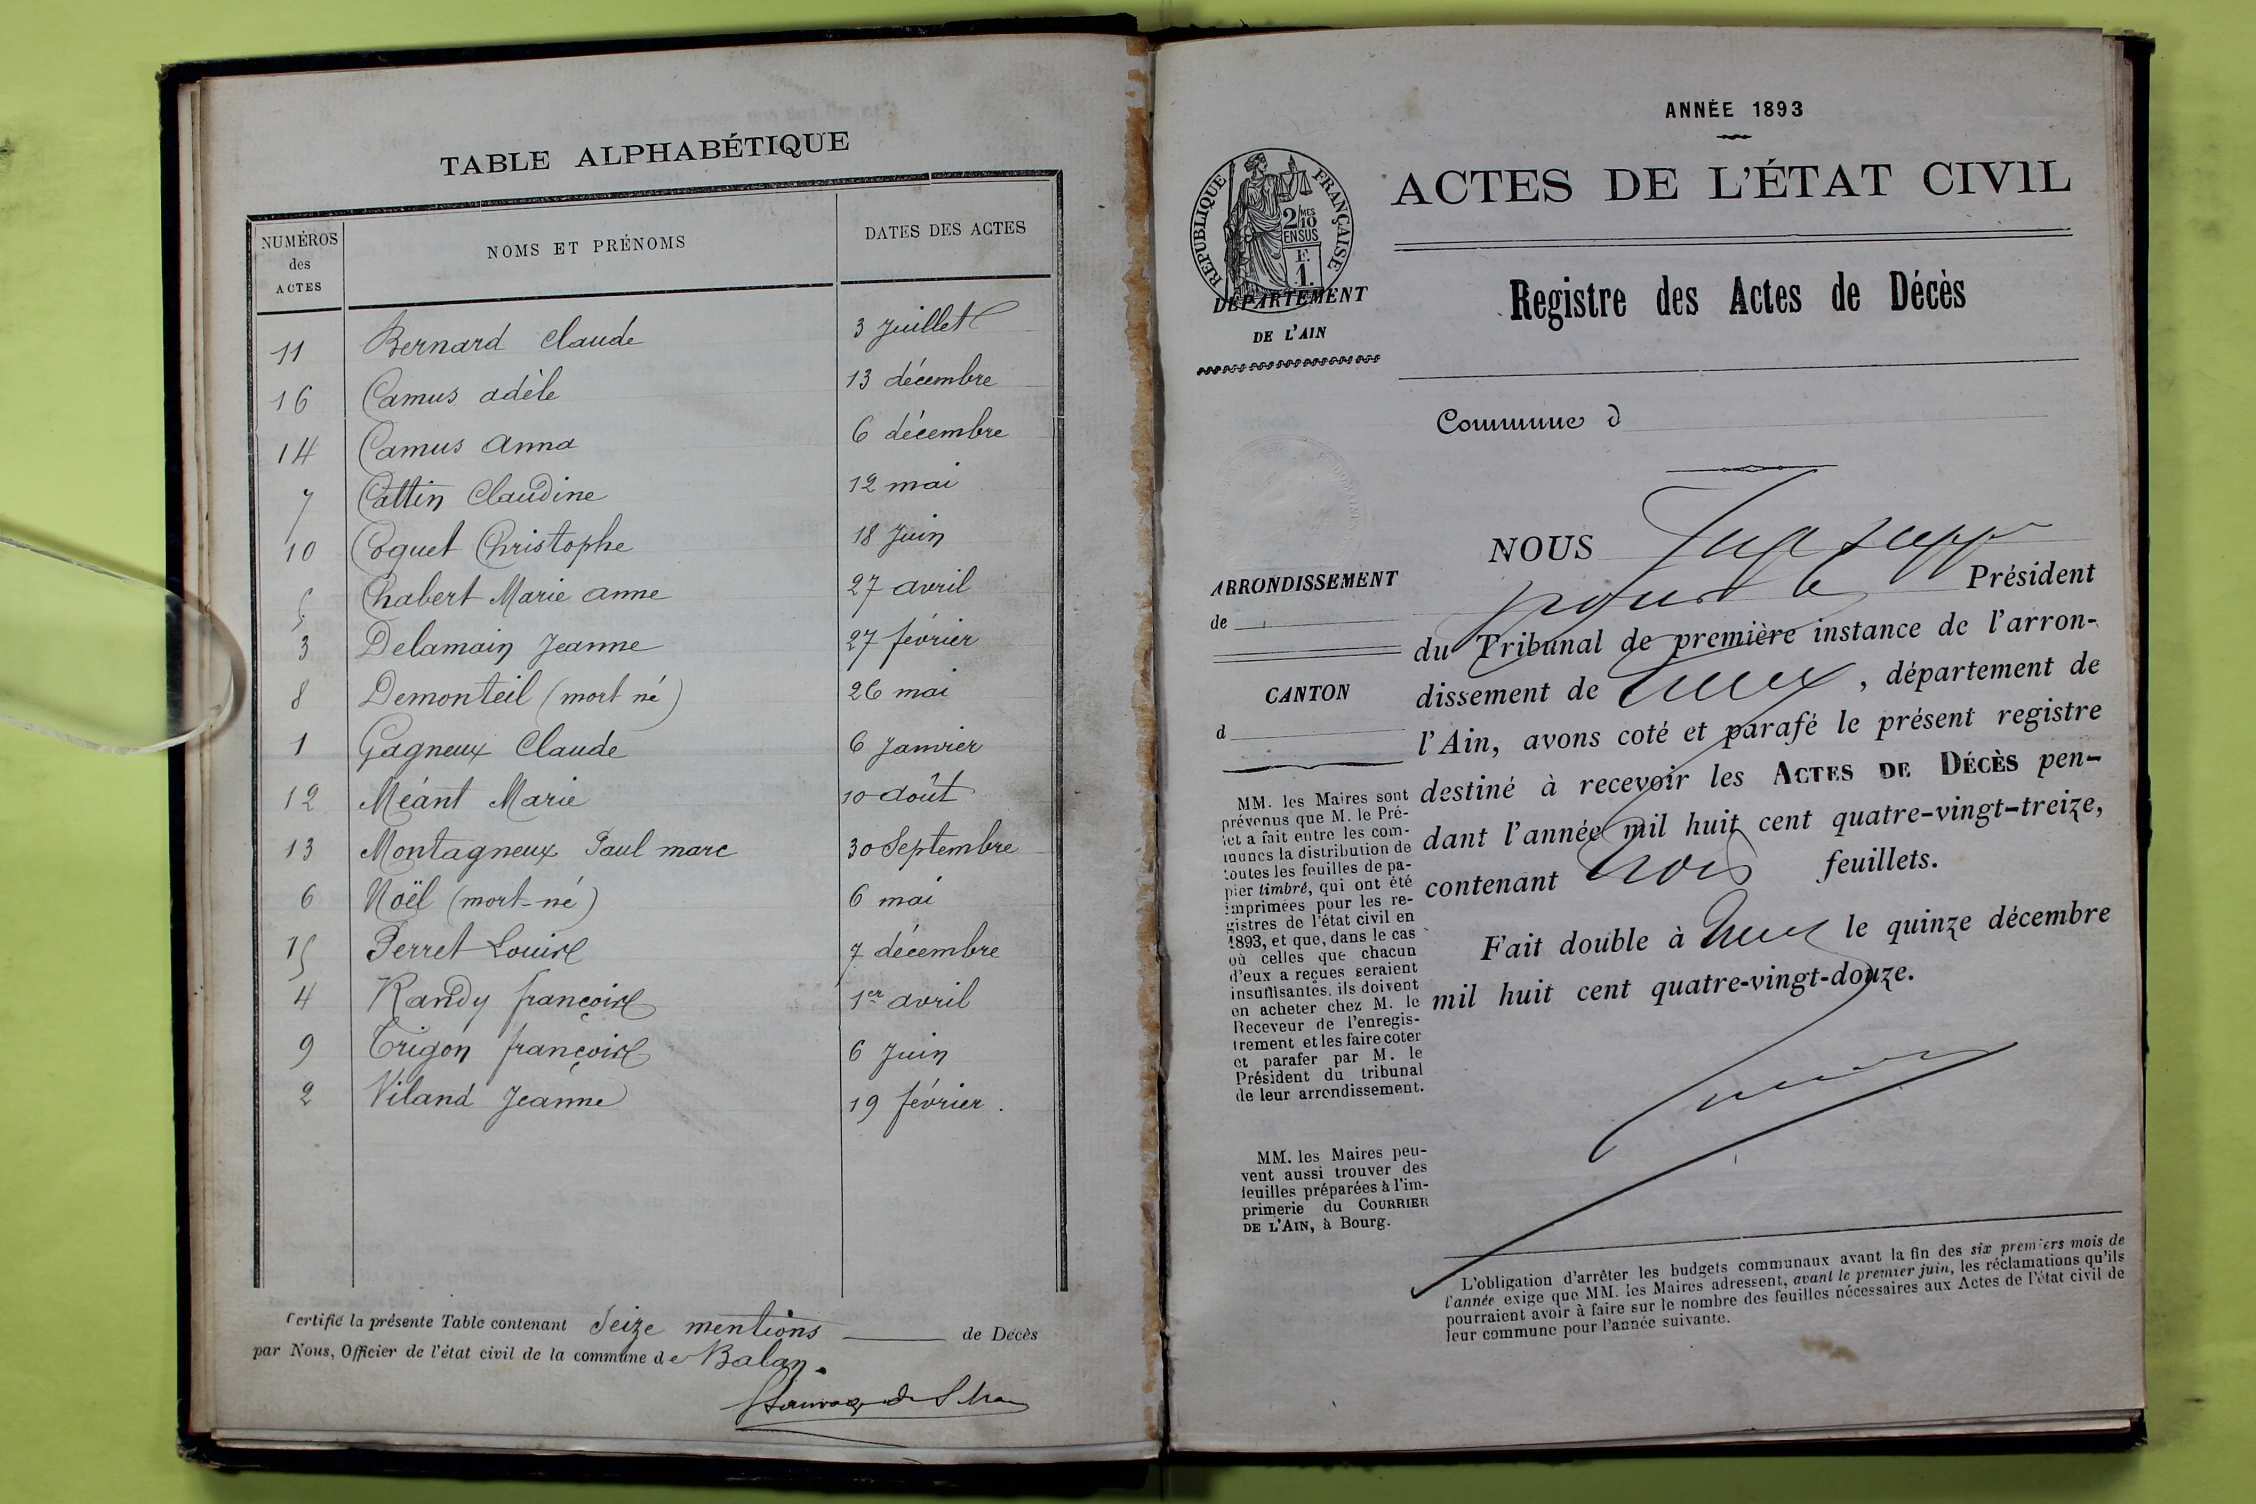 TABLE ALPHABÉTIQUE
NUMÉROS des ACTES NOMS ET PRÉNOMS DATES DES ACTES
11 Bernard Claude 3 Juillet
16 Camus adèle 13 décembre
14 Camus anna 6 décembre
7 Cattin Claudine 12 mai
10 Coquet Christophe 18 Juin
5 Chabert Marie anne 27 avril
3 Delamain Jeanne 27 février
8 Demonteil (mort né) 26 mai
1 Gagneux Claude 6 Janvier
12 Méant Marie 10 août
13 Montagneux Paul marc 30 Septembre
6 Noël (mort-né) 6 mai
15 Perret Louise 7 décembre
4 Randy françoise 1er avril
9 Trigon françoise 6 Juin
2 Viland Jeanne 19 février.
Certifié la présente Table contenant Seize mentions de Décès
par Nous, Officier de l'état civil de la commune de Balan.
ANNÉE 1893
ACTES DE L'ÉTAT CIVIL
RÉPUBLIQUE FRANÇAISE
2/10 MES
EN SUS
F.
1.
DÉPARTEMENT
DE L'AIN
Registre des Actes de Décès
Commune d
ARRONDISSEMENT
de
CANTON
d
MM. les Maires sont
prévenus que M. le Pré-
fet a fait entre les com-
munes la distribution de
toutes les feuilles de pa-
pier timbré, qui ont été
imprimées pour les re-
gistres de l'état civil en
1893, et que, dans le cas
où celles que chacun
d'eux a reçues seraient
insuffisantes, ils doivent
en acheter chez M. le
Receveur de l'enregis-
trement et les faire coter
et parafer par M. le
Président du tribunal
de leur arrondissement.
MM. les Maires peu-
vent aussi trouver des
feuilles préparées à l'im-
primerie du COURRIER
DE L'AIN, à Bourg.
NOUS Juge supp
pour le Président
du Tribunal de première instance de l'arron-
dissement de , département de
l'Ain, avons coté et parafé le présent registre
destiné à recevoir les ACTES DE DÉCÈS pen-
dant l'année mil huit cent quatre-vingt-treize,
contenant trois feuillets.
Fait double à le quinze décembre
mil huit cent quatre-vingt-douze.
L'obligation d'arrêter les budgets communaux avant la fin des six premiers mois de
l'année exige que MM. les Maires adressent, avant le premier juin, les réclamations qu'ils
pourraient avoir à faire sur le nombre des feuilles nécessaires aux Actes de l'état civil de
leur commune pour l'année suivante.